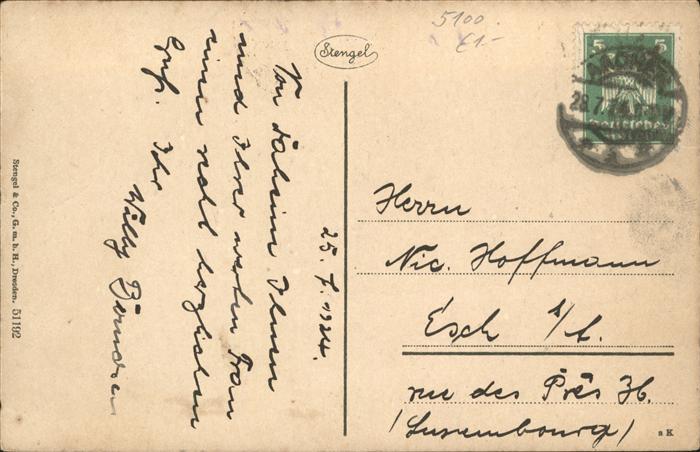 5100
£1-
Stengel
25. 7. 1924.
Von daheim Ihnen
und Ihrer werten Frau
einen recht herzlichen
Gruß. Ihr
Willy
Stengel & Co., G. m. b. H., Dresden. 51192
5 5
AACHEN
Deutsches
Herrn
Nic. Hoffmann
Esch s/A.
rue des Prés
(Luxembourg)
a K